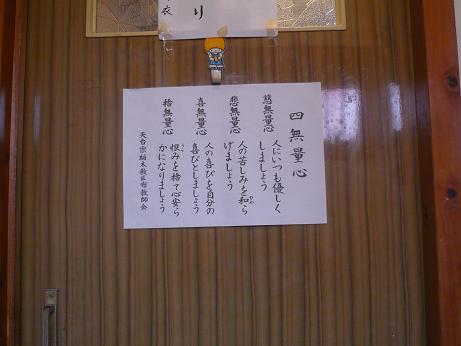 り
衣
四無量心
慈無量心 人にいつも優しく
しましょう
悲無量心 人の苦しみを和ら
げましょう
喜無量心 人の喜びを自分の
喜びとしましょう
捨無量心 恨みを捨て心安ら
かになりましょう
天台宗栃木教区布教師会